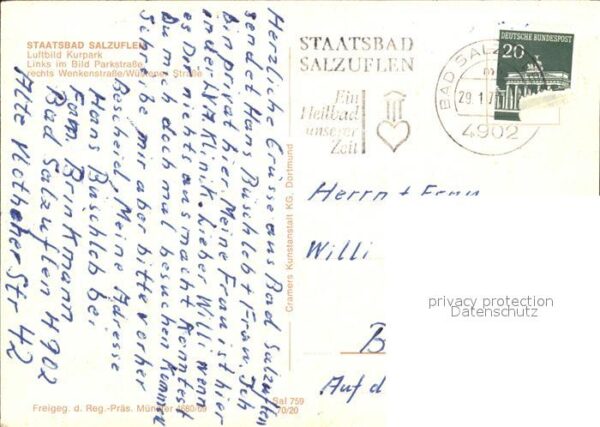 STAATSBAD SALZUFLEN
Luftbild Kurpark
Links im Bild Parkstraße,
rechts Wenkenstraße/Wüstener Straße
Herzliche Grüsse aus Bad Salzuflen
sendet Hans Büschleb + Frau. Ich
bin privat hier. Meine Frau ist hier
in der LVA Klinik. Lieber Willi wenn
es Dir nichts ausmacht könntest
Du mich doch mal besuchen kommen
mir aber bitte vorher
Bescheid, Meine Adresse
Hans Büschleb bei
Fam Brinkmann
Bad Salzuflen 4902
Alte Str 42
Freigeg. d. Reg.-Präs. Münster
Sal 759
Cramers Kunstanstalt KG. Dortmund
STAATSBAD
SALZUFLEN
Ein
Heilbad
unserer
Zeit
BAD SALZ
29.1.7
4902
DEUTSCHE BUNDESPOST
20
Herrn + Frau
Willi
B
Auf d
privacy protection
Datenschutz